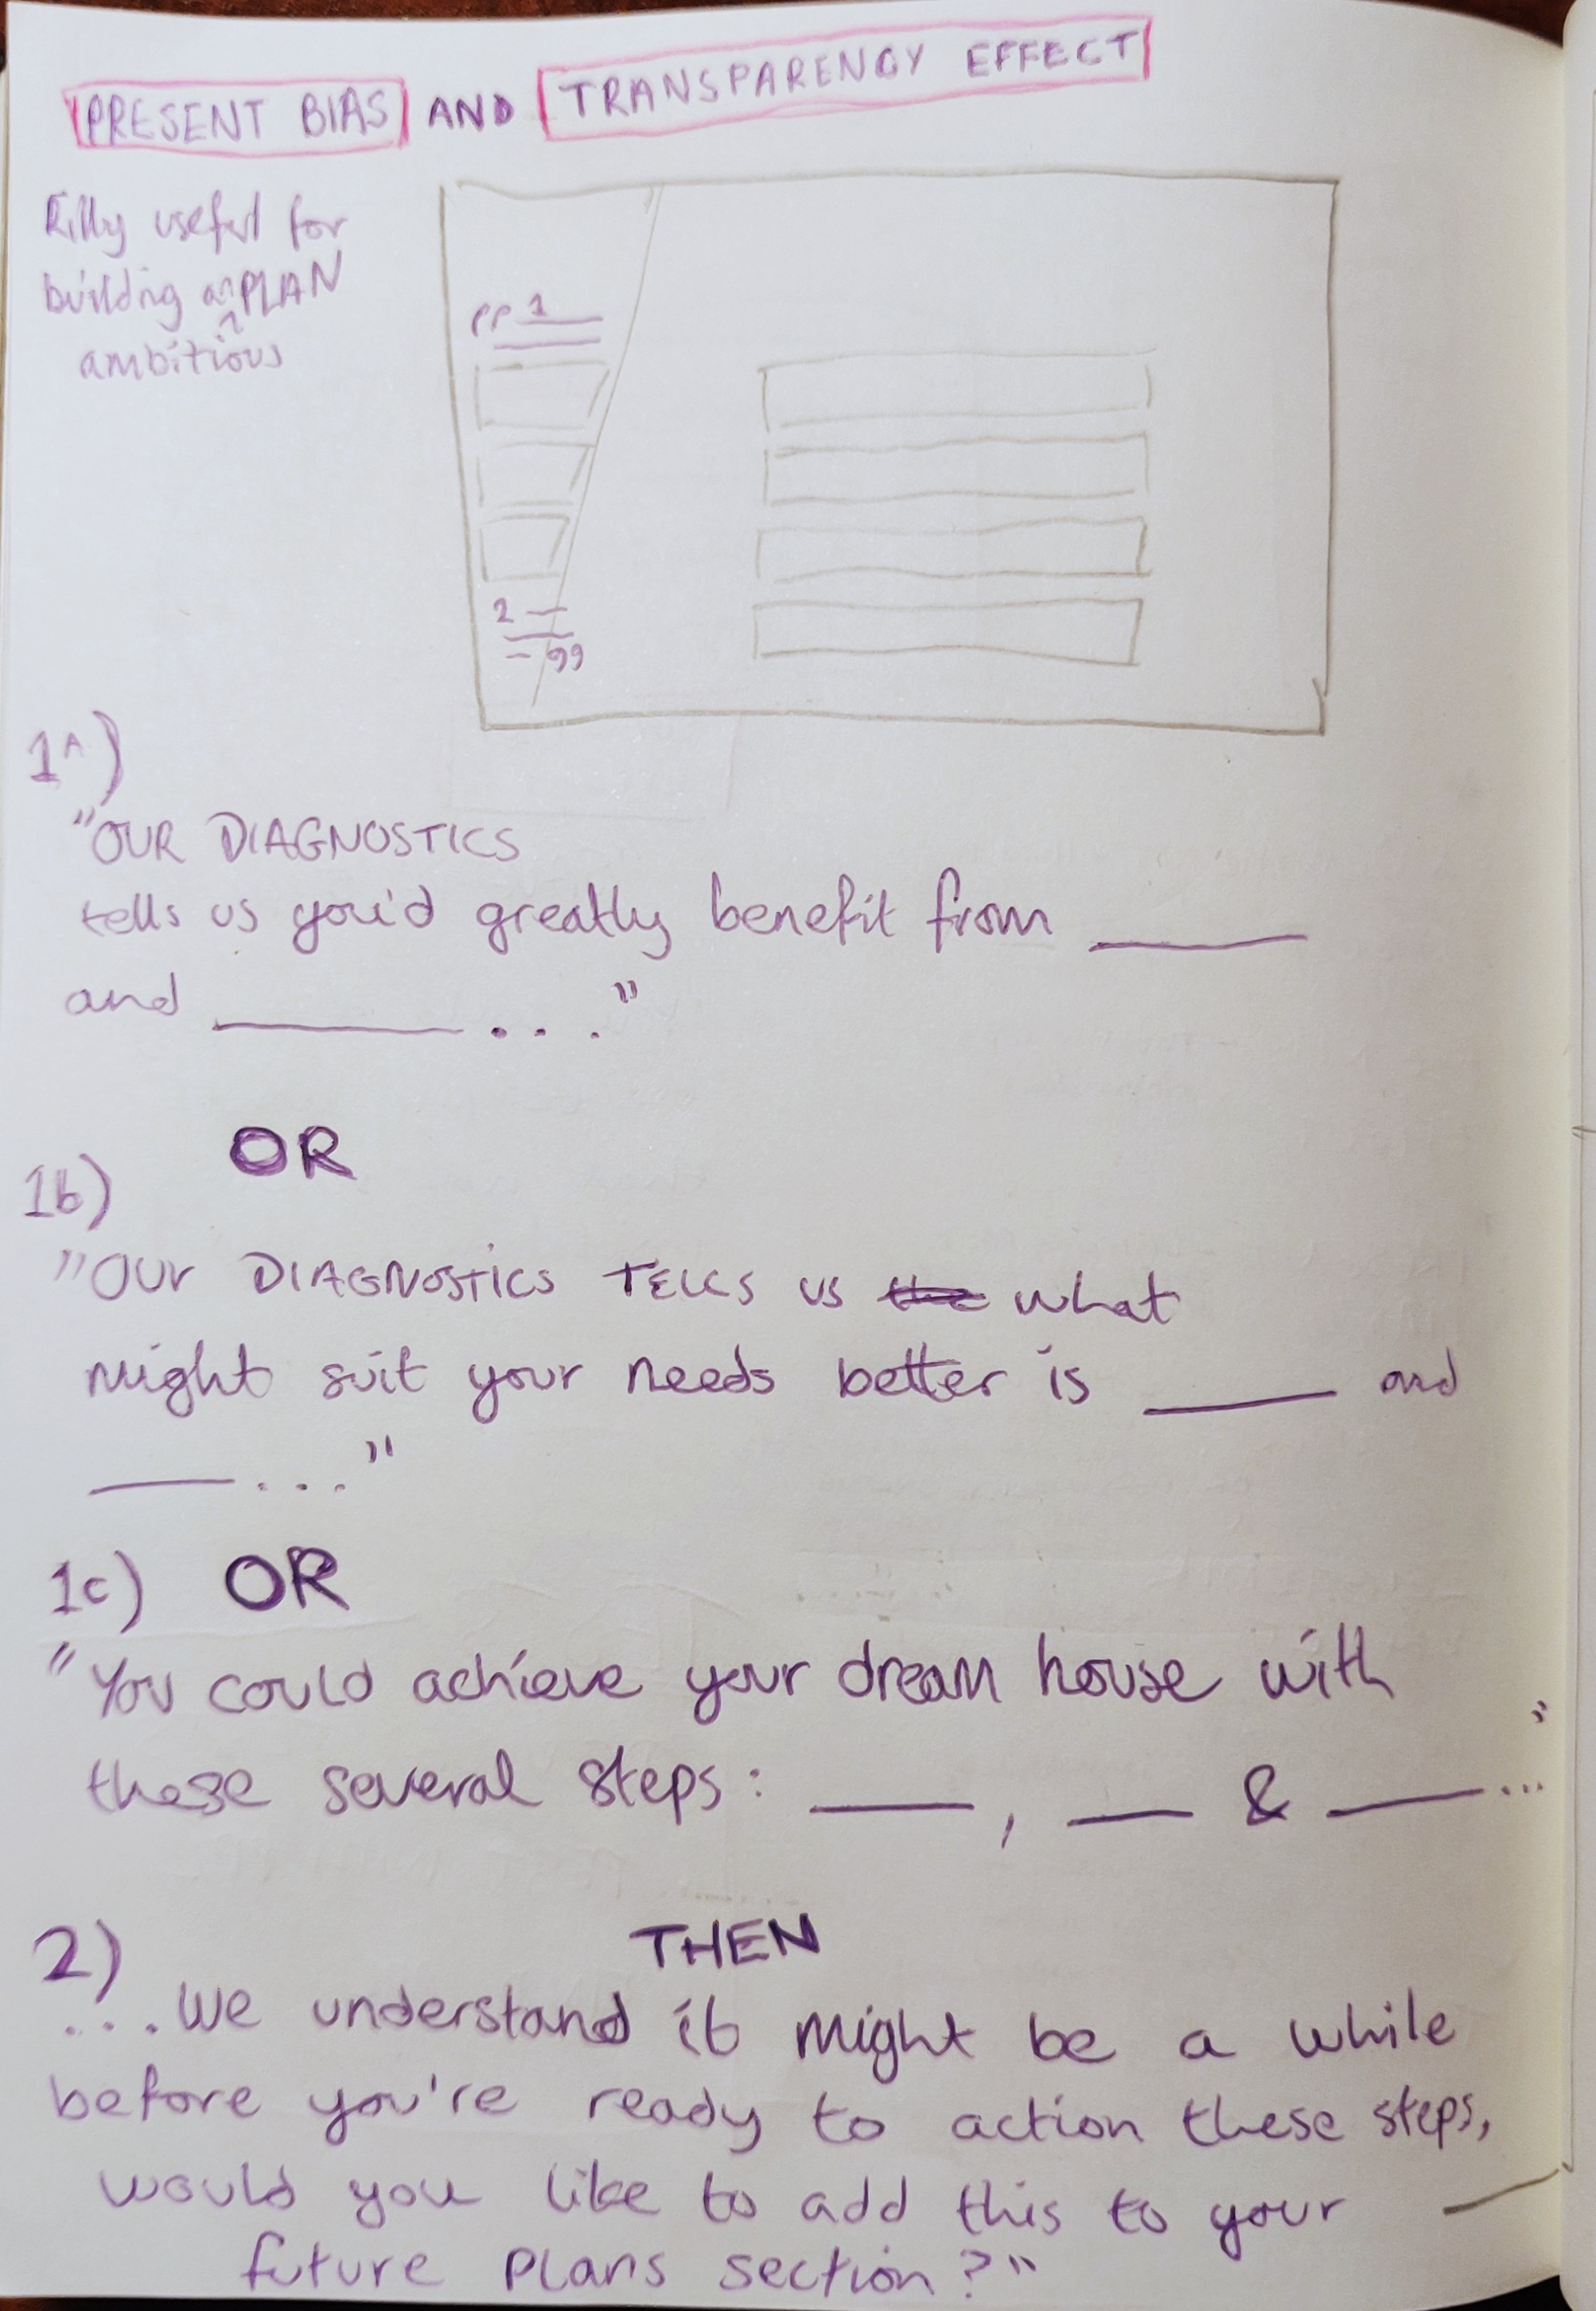 PRESENT BIAS AND TRANSPARENCY EFFECT
Rilly useful for
building an PLAN
ambitious
1
2
99
1A)
"OUR DIAGNOSTICS
tells us you'd greatly benefit from ____
and ____ ..."
OR
1b)
"OUr DIAGNOSTICS TELLS US the what
might suit your needs better is ____ and
____ ..."
1c) OR
"You could achieve your dream house with
these several steps: ____, ____ & ____ ..."
2) THEN
...We understand it might be a while
before you're ready to action these steps,
would you like to add this to your
future plans section?"